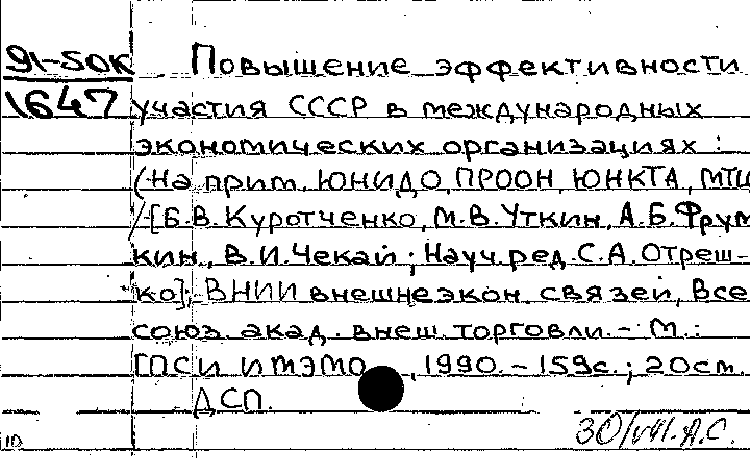 91-50К Повышение эффективности
1647 участия СССР в международных
экономических организациях :
(На прим. ЮНИДО, ПРООН, ЮНКТА, МТЦ
/ [Б.В. Куротченко, М.В. Уткин, А.Б. Фрум
кин, В.И. Чекай ; Науч. ред. С.А. Отреш-
ко]; ВНИИ внешнеэкон. связей, Все
союз. акад. внеш. торговли. - М. :
ГПСИ ИМЭМО, 1990. - 159с. ; 20см.
ДСП.
30/VII. А.С.
10